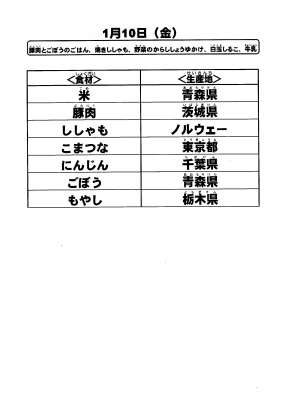 1月10日（金）
豚肉とごぼうのごはん、焼きししゃも、野菜のからししょうゆかけ、白玉しるこ、牛乳
＜食材＞ ＜生産地＞
米 青森県
豚肉 茨城県
ししゃも ノルウェー
こまつな 東京都
にんじん 千葉県
ごぼう 青森県
もやし 栃木県